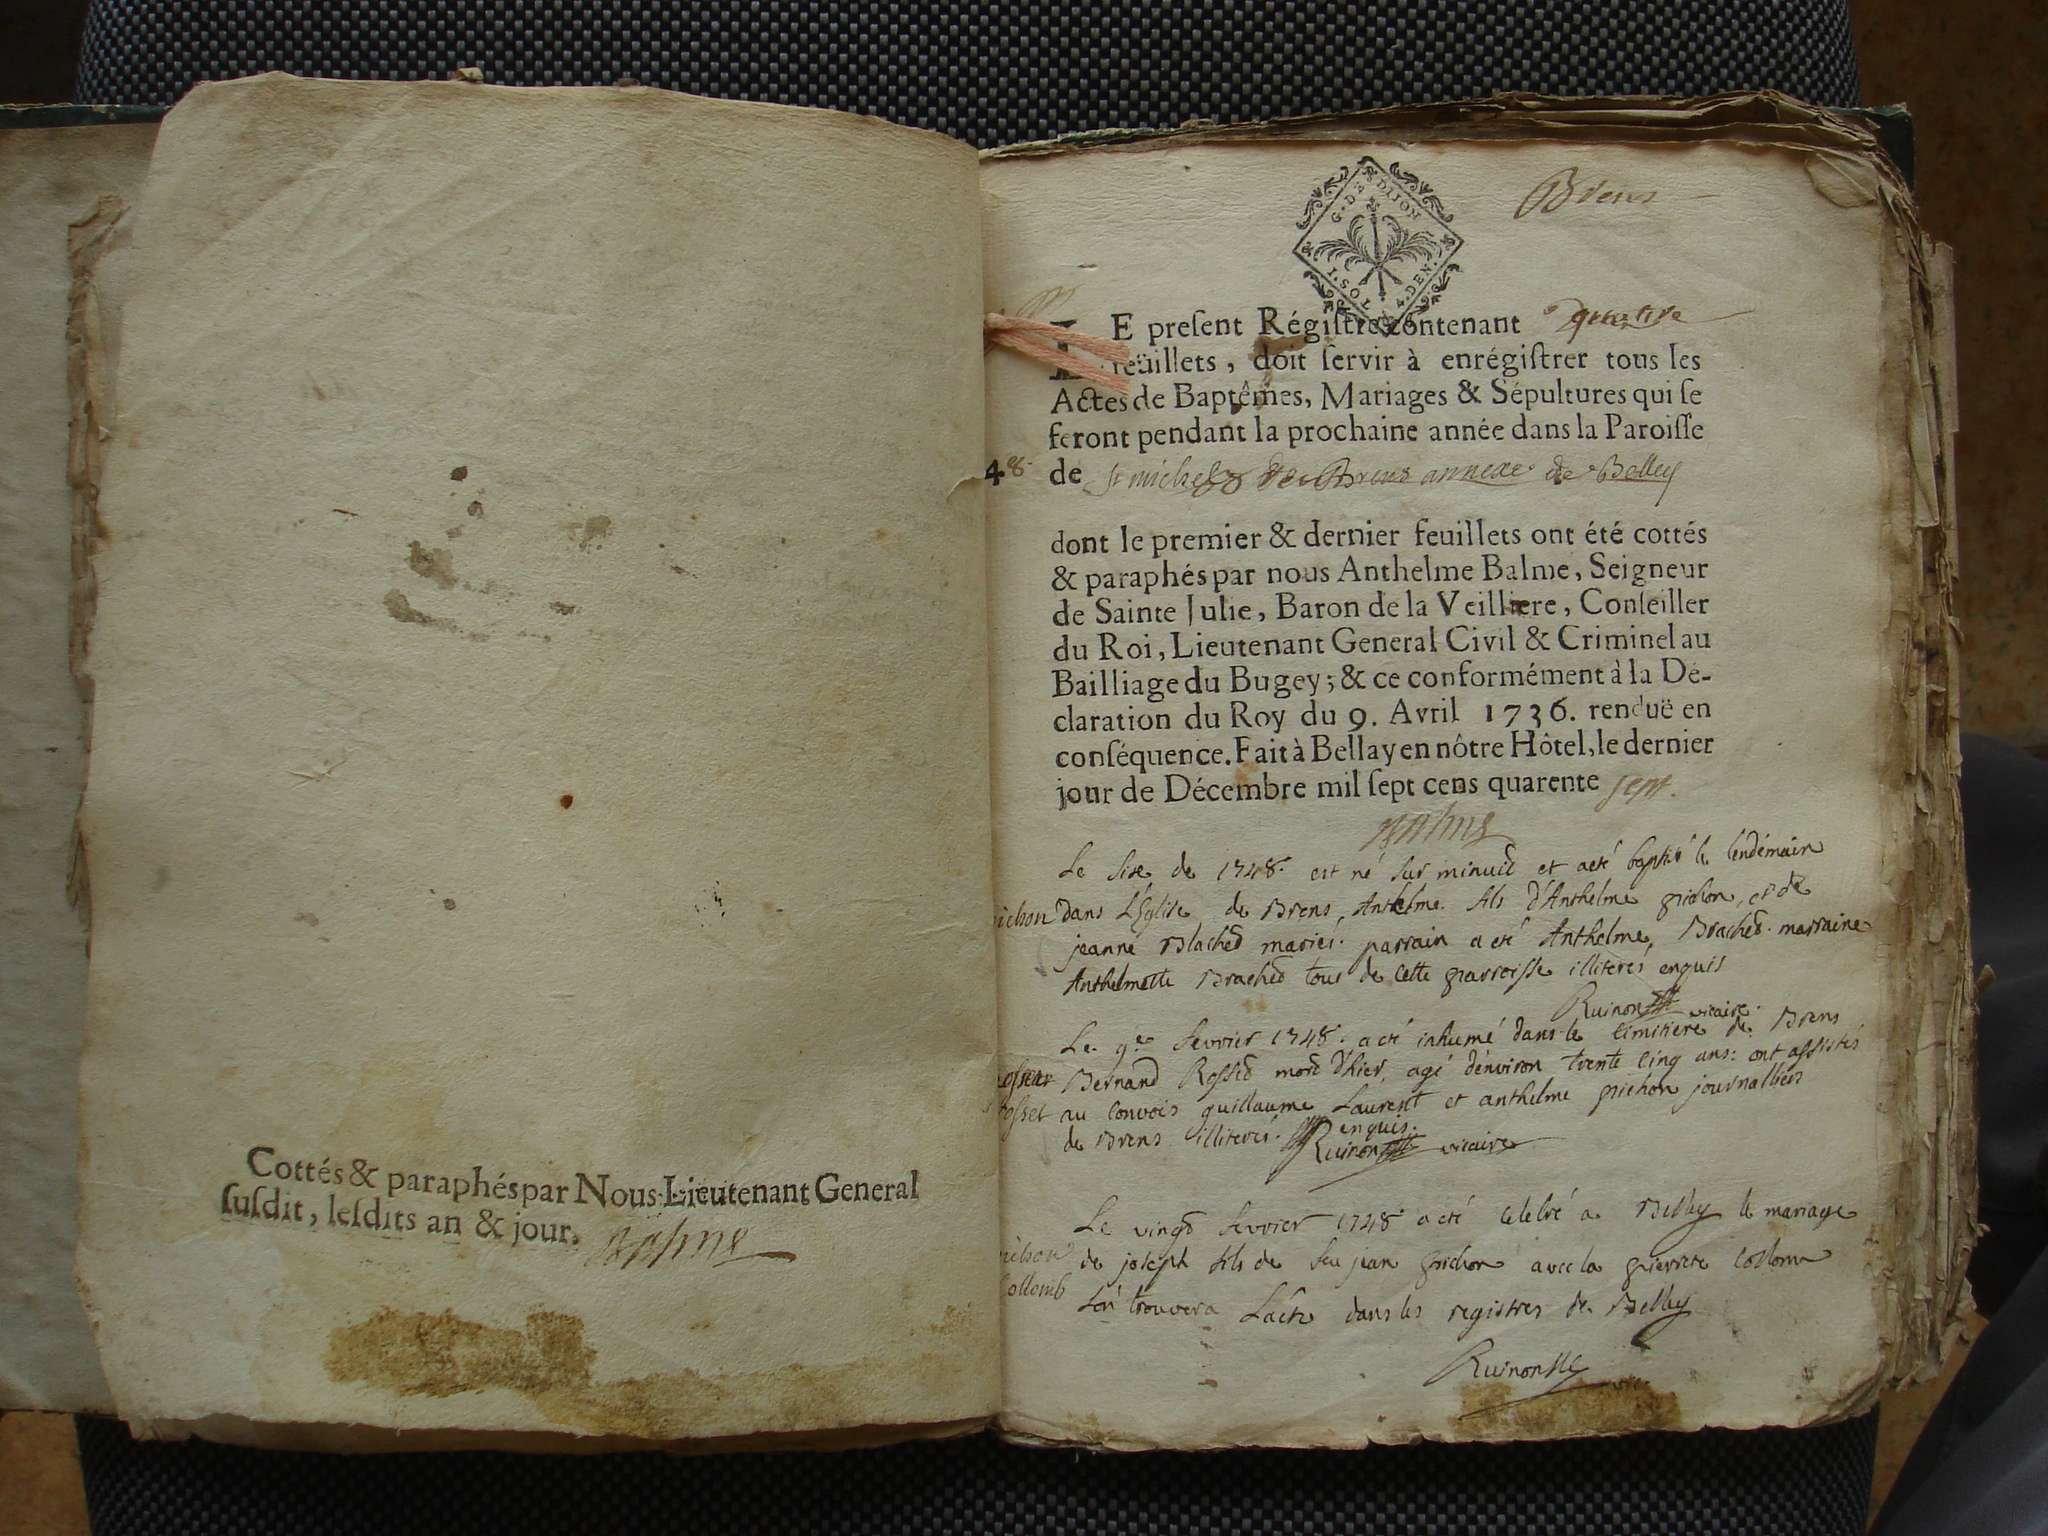 Cottés & paraphés par Nous Lieutenant General
ſuſdit, leſdits an & jour.
Balme
G. D DIJON
1. SOL 4. DEN.
Brens
LE preſent Régiſtre contenant quatre
feüillets, doit ſervir à enrégiſtrer tous les
Actes de Baptêmes, Mariages & Sépultures qui ſe
feront pendant la prochaine année dans la Paroiſſe
48. de St michel de Brens annexe de Belley
dont le premier & dernier feuillets ont été cottés
& paraphés par nous Anthelme Balme, Seigneur
de Sainte Julie, Baron de la Veilliere, Conſeiller
du Roi, Lieutenant General Civil & Criminel au
Bailliage du Bugey; & ce conformément à la De-
claration du Roy du 9. Avril 1736. renduë en
conſéquence. Fait à Bellay en nôtre Hôtel, le dernier
jour de Décembre mil ſept cens quarente sept.
Balme
Le sixe de 1748. est né sur minuid et a eté baptisé le lendémain
pichon dans L'Eglise de Brens, Anthelme fils d'Anthelme pichon, et de
jeanne Blached mariés. parrain a eté Anthelme Brached. marraine
Anthelmette Brached tous de cette parroisse illiterés enquis
Ruinon vicaire.
Le 9e fevrier 1748. a eté inhumé dans le cimitiere de Brens
Bernand Rossed mord d'hier, agé dénviron trente cinq ans: ont assistés
rosset au convois guillaume Laurent et anthelme pichon journalliers
de Brens illiterés. enquis.
Ruinon vicaire
Le vingd fevrier 1748 a eté celebré a Belley le mariage
pichon de joseph fils de feu jean pichon avec la pierrete collom
collomb L'on trouvera L'acte dans les registres de Belley
Ruinon vic.